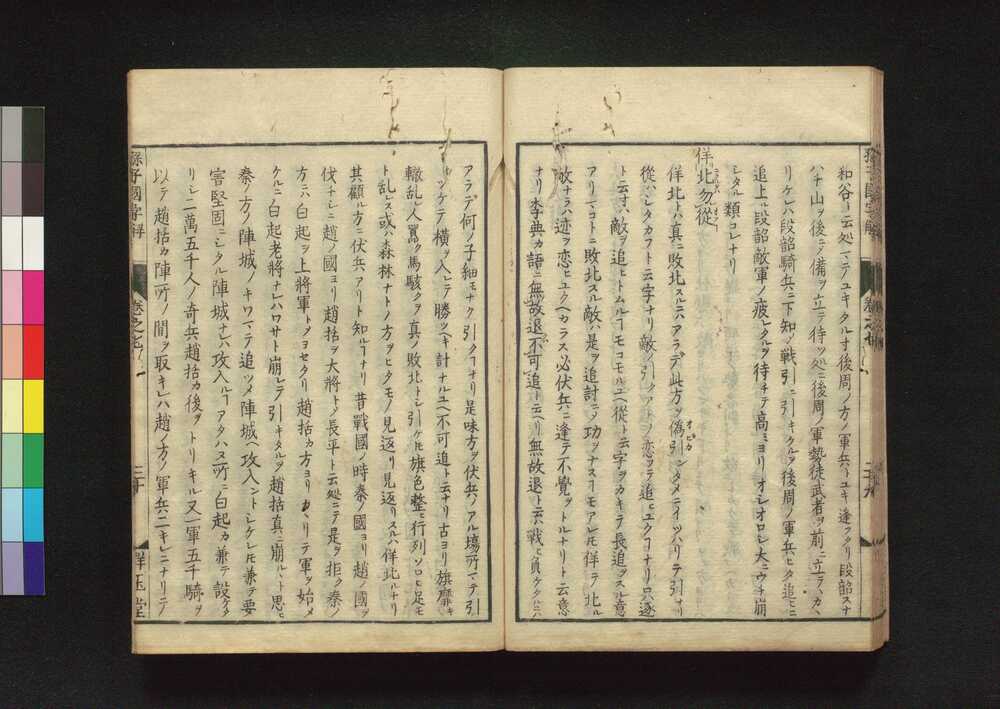 和谷ト云処ニテユキタルオ後周ノ方ノ軍兵トユキ逢タリ段韶スナ
ハチ山ヲ後ニヲ備ヲ立テ待ツ処ニ後周ノ軍勢徒武者ヲ前ニ立テカヽ
リケレハ段韶騎兵ニ下知シ戦引ニ引キクルヲ後周ノ軍兵ヒタ追ヒニ
追上ル段韶敵軍ノ疲レタルヲ待チテ高ミヨリオシオロシ大ニウチ崩
シタル類コレナリ
佯北勿從
佯北トハ真ニ敗北スルニハアラデ此方ヲ偽引ンタメニイツハリテ引ナリ
從ハシタカフト云字ナリ敵ノ引クアトヲ恋フテ追ヒユクコナリ口ハ逐
ト云寸ハ敵ヲ追ヒトムルコモコモルユヘ從ト云字ヲカキテ長追スル意
アリマコトニ敗北スル敵ハ是ヲ追討ニシ功ヲナスコモアレ𪜈佯テ北ル
敵ナラハ迹ヲ恋ヒユクヘカラス必伏兵ニ逢テ不覚ヲトルナリト云意
ナリ李典カ語ニ無故退不可追ト云ヘリ無故退トハ戦ヒ負ケタルニハ
アラデ何ノ子細モナク引クコナリ是味方ヲ伏兵ノアル場所マテ引
ツケテ横ヲ入レテ勝ツヘキ計ナルユヘ不可追ト云ナリ古ヨリ旗靡キ
轍乱レ人囂ク馬駭クヲ真ノ敗北トシ引ケ𪜈旗色整ヒ行列ソロヒ足モ
ト乱レス或ハ森林ナトノ方ヲヒタモノ見返リ見返リスルハ佯北ルナリ
其顧ル方ニ伏兵アリト知ルコナリ昔戰國ノ時秦ノ國ヨリ趙ノ國ヲ
伏ナシニ趙ノ國ヨリ趙括ヲ大将トメ長平ト云処ニテ是ヲ拒ク秦ノ
方ニハ白起ヲ上将軍トメヨセタリ趙括カ方ヨリカヽリテ軍ヲ始メ
ケルニ白起老将ナレハワサト崩レテ引キタルヲ趙括真ニ崩ルヽト思ヒ
秦ノ方ノ陣城ノキワマテ追ツメ陣城ヘ攻入ントシケレ𪜈兼テ要
害堅固ニシタル陣城ナレハ攻入ルコアタハス所ニ白起カ兼テ設ケタ
リシ二萬五千人ノ奇兵趙括カ後ヲトリキル又一軍五千騎ヲ
以テ趙括カ陣所ノ間ヲ取キレハ趙ノ方ノ軍兵二キレニナリテ
孫子國字解
卷之七
三十
群玉堂